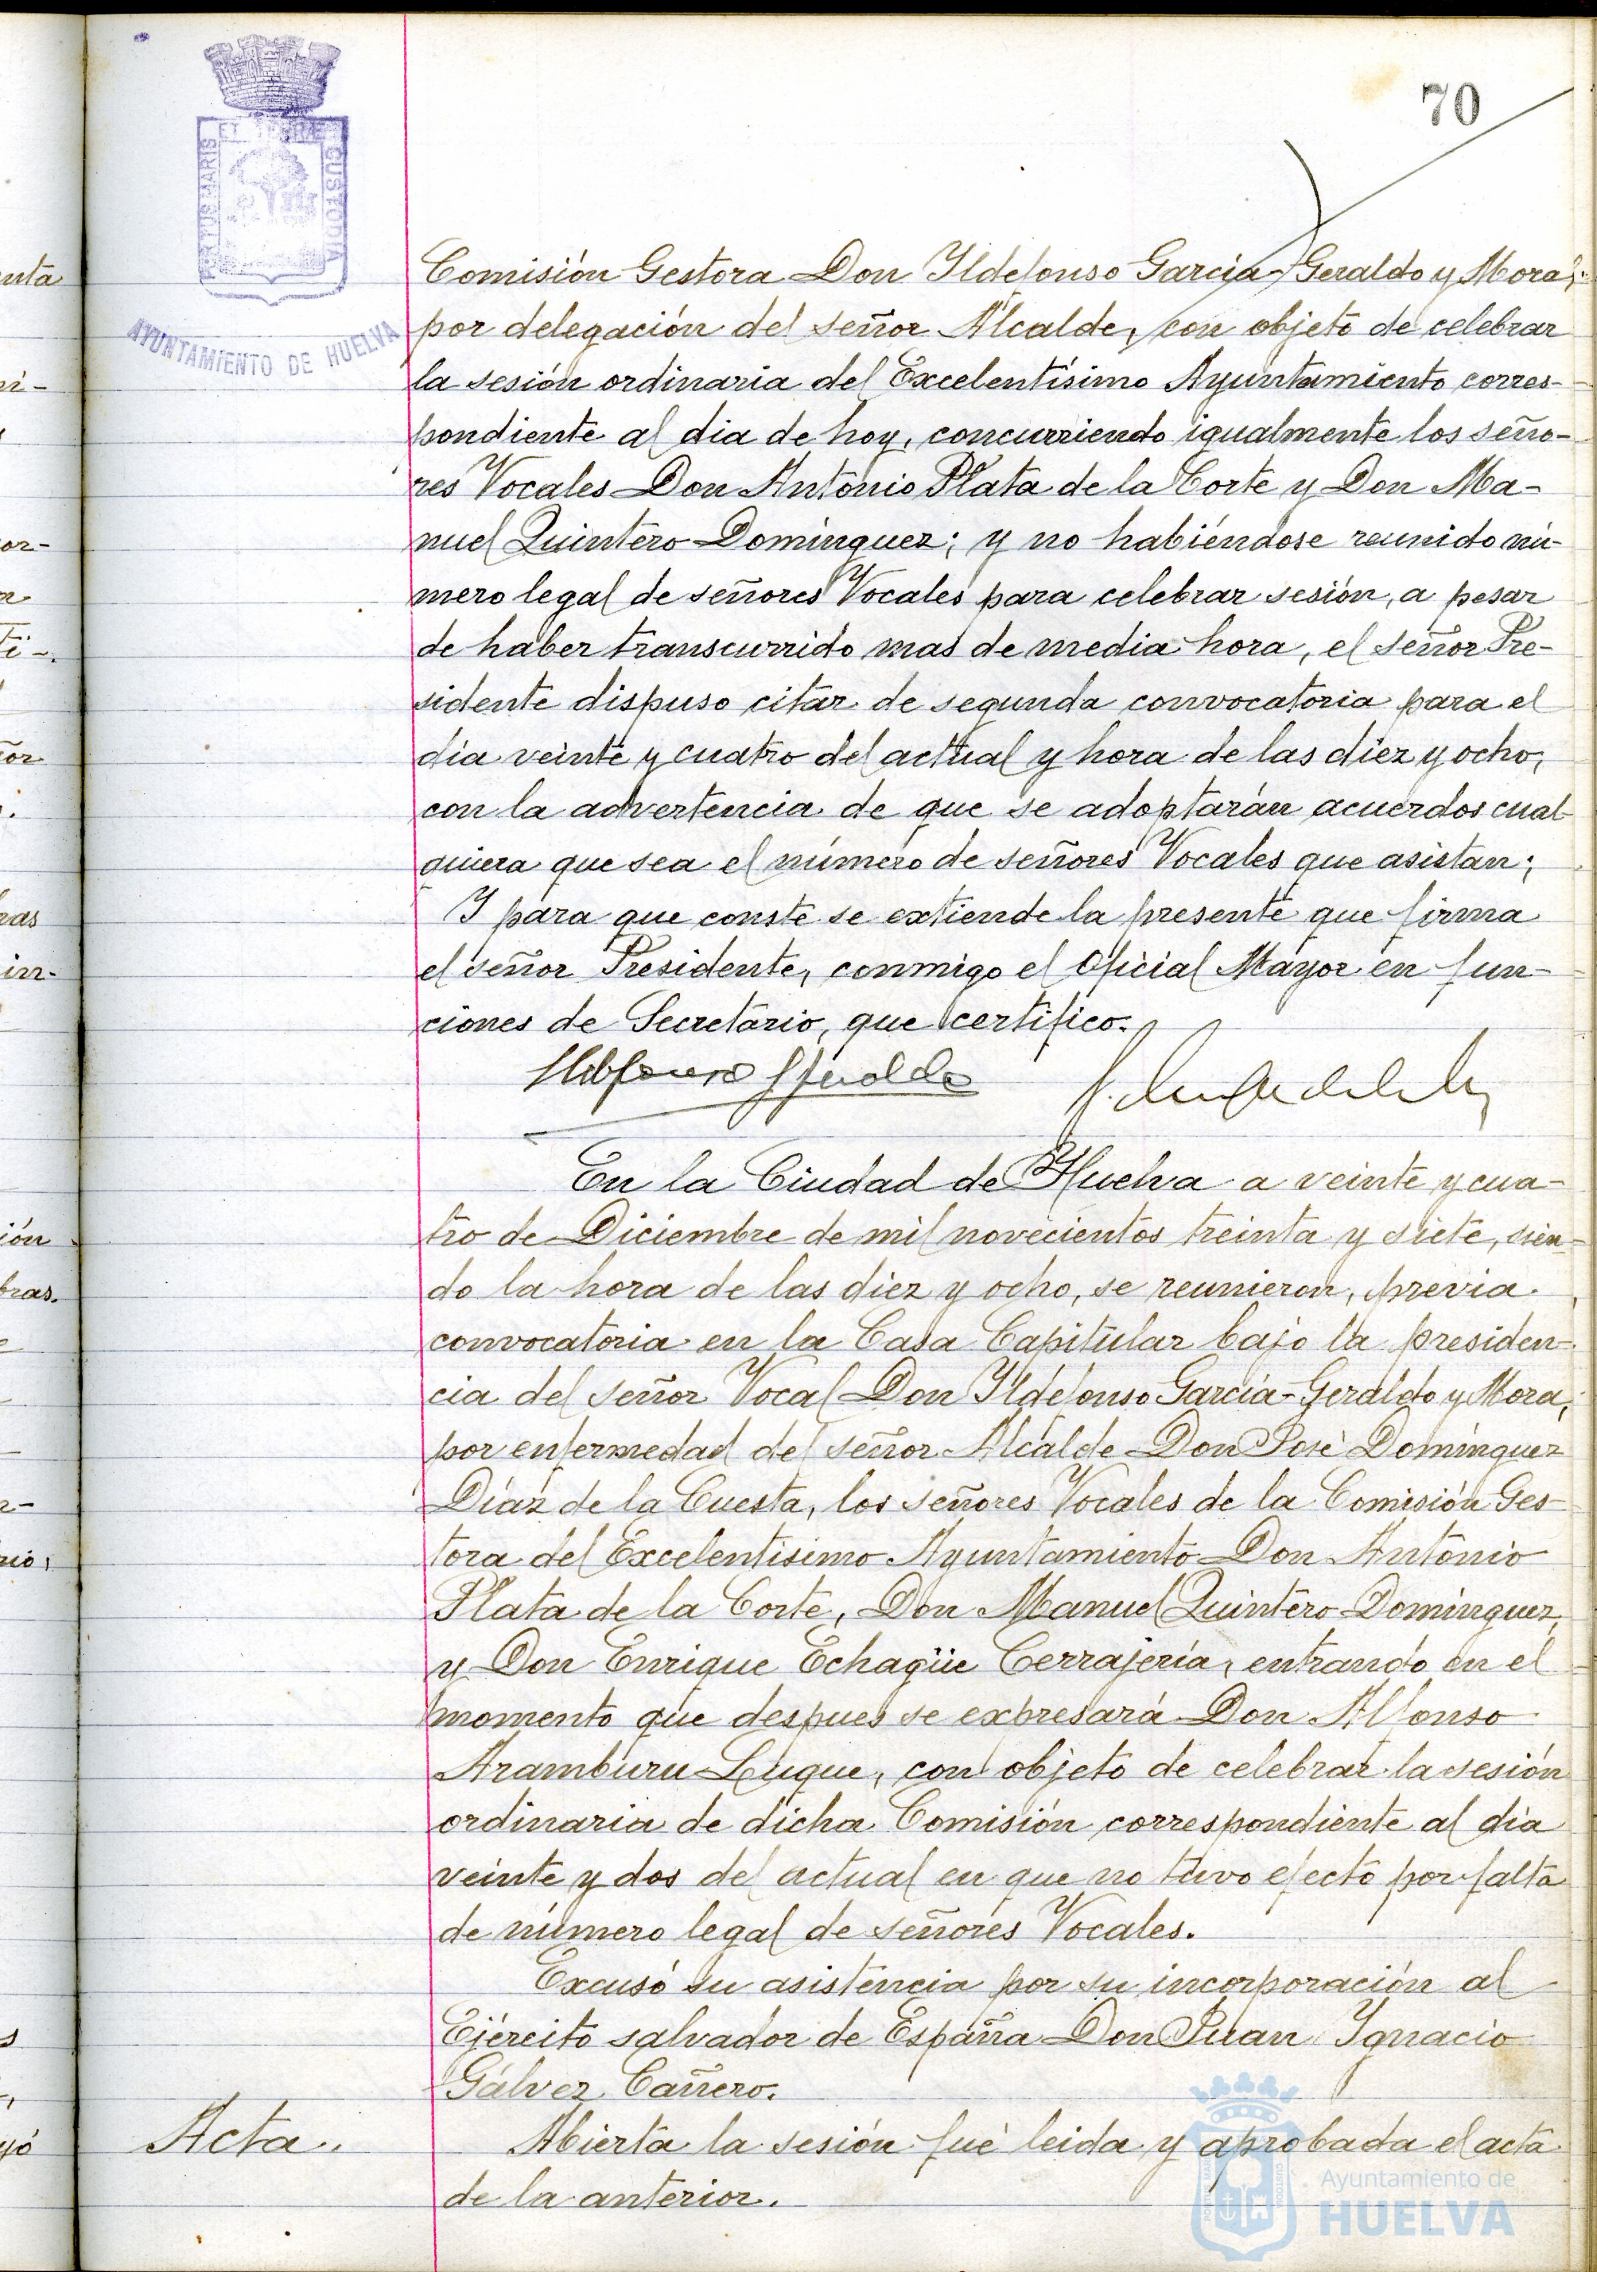 70
PORTUS MARIS ET TERRAE CUSTODIA
AYUNTAMIENTO DE HUELVA
Comisión Gestora Don Yldefonso García-Geraldo y Mora,
por delegación del señor Alcalde, con objeto de celebrar
la sesión ordinaria del Excelentísimo Ayuntamiento corres-
pondiente al dia de hoy, concurriendo igualmente los seño-
res Vocales Don Antonio Plata de la Corte y Don Ma-
nuel Quintero Domínguez; y no habiéndose reunido nú-
mero legal de señores Vocales para celebrar sesión, a pesar
de haber transcurrido mas de media hora, el señor Pre-
sidente dispuso citar de segunda convocatoria para el
día veinte y cuatro del actual y hora de las diez y ocho,
con la advertencia de que se adoptarán acuerdos cual-
quiera que sea el número de señores Vocales que asistan;
Y para que conste se extiende la presente que firma
el señor Presidente, conmigo el Oficial Mayor en fun-
ciones de Secretario, que certifico.
Ildefonso Geraldo
En la Ciudad de Huelva a veinte y cua-
tro de Diciembre de mil novecientos treinta y siete, sien-
do la hora de las diez y ocho, se reunieron, previa
convocatoria en la Casa Capitular bajo la presiden-
cia del señor Vocal Don Yldefonso García-Geraldo y Mora,
por enfermedad del señor Alcalde Don José Domínguez
Díaz de la Cuesta, los señores Vocales de la Comisión Ges-
tora del Excelentísimo Ayuntamiento Don Antonio
Plata de la Corte, Don Manuel Quintero Domínguez,
y Don Enrique Echagüe Cerrajería, entrando en el
momento que despues se expresará Don Alfonso
Aramburu Luque, con objeto de celebrar la sesión
ordinaria de dicha Comisión correspondiente al día
veinte y dos del actual en que no tuvo efecto por falta
de número legal de señores Vocales.
Excusó su asistencia por su incorporación al
Ejército salvador de España Don Juan Ygnacio
Gálvez Cañero.
Acta.
Abierta la sesión fué leida y aprobada el acta
de la anterior.
Ayuntamiento de
HUELVA